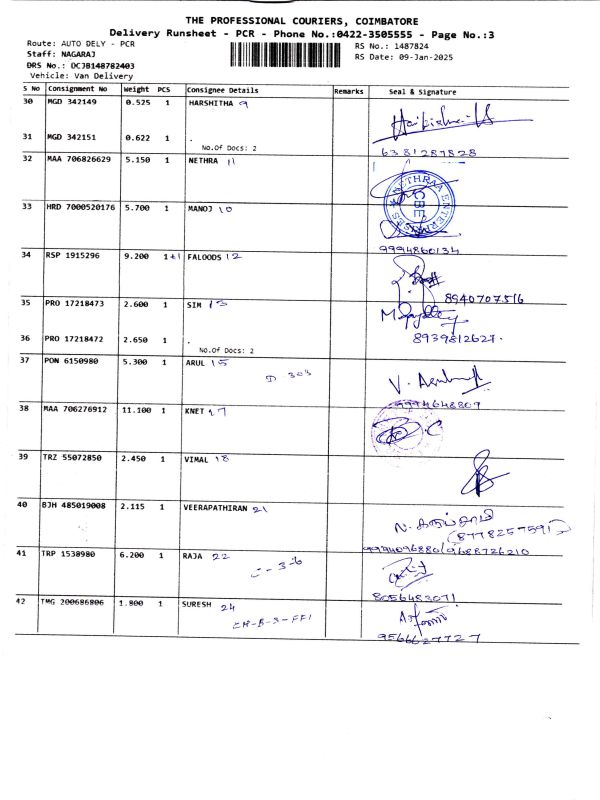 THE PROFESSIONAL COURIERS, COIMBATORE
Delivery Runsheet - PCR - Phone No.:0422-3505555 - Page No.:3
Route: AUTO DELY - PCR RS No.: 1487824
Staff: NAGARAJ RS Date: 09-Jan-2025
DRS No.: DCJB148782403
Vehicle: Van Delivery
S No Consignment No Weight PCS Consignee Details Remarks Seal & Signature
30 MGD 342149 0.525 1 HARSHITHA 9
31 MGD 342151 0.622 1 .
No.Of Docs: 2
6381287828
32 MAA 706826629 5.150 1 NETHRA 11
NETHRAA ENTERPRISES CBE
33 HRD 7000520176 5.700 1 MANOJ 10
9994860134
34 RSP 1915296 9.200 1+1 FALOODS 12
8940707516
35 PRO 17218473 2.600 1 SIM 13
8939812627.
36 PRO 17218472 2.650 1 .
No.Of Docs: 2
37 PON 6150980 5.300 1 ARUL 15
D 303
9994648809
38 MAA 706276912 11.100 1 KNET 17
39 TRZ 55072850 2.450 1 VIMAL 18
40 BJH 485019008 2.115 1 VEERAPATHIRAN 21
(8778257591)
9994096880/9688726210
41 TRP 1538980 6.200 1 RAJA 22
C-3-6
8056483071
42 TMG 200686806 1.800 1 SURESH 24
9566627727